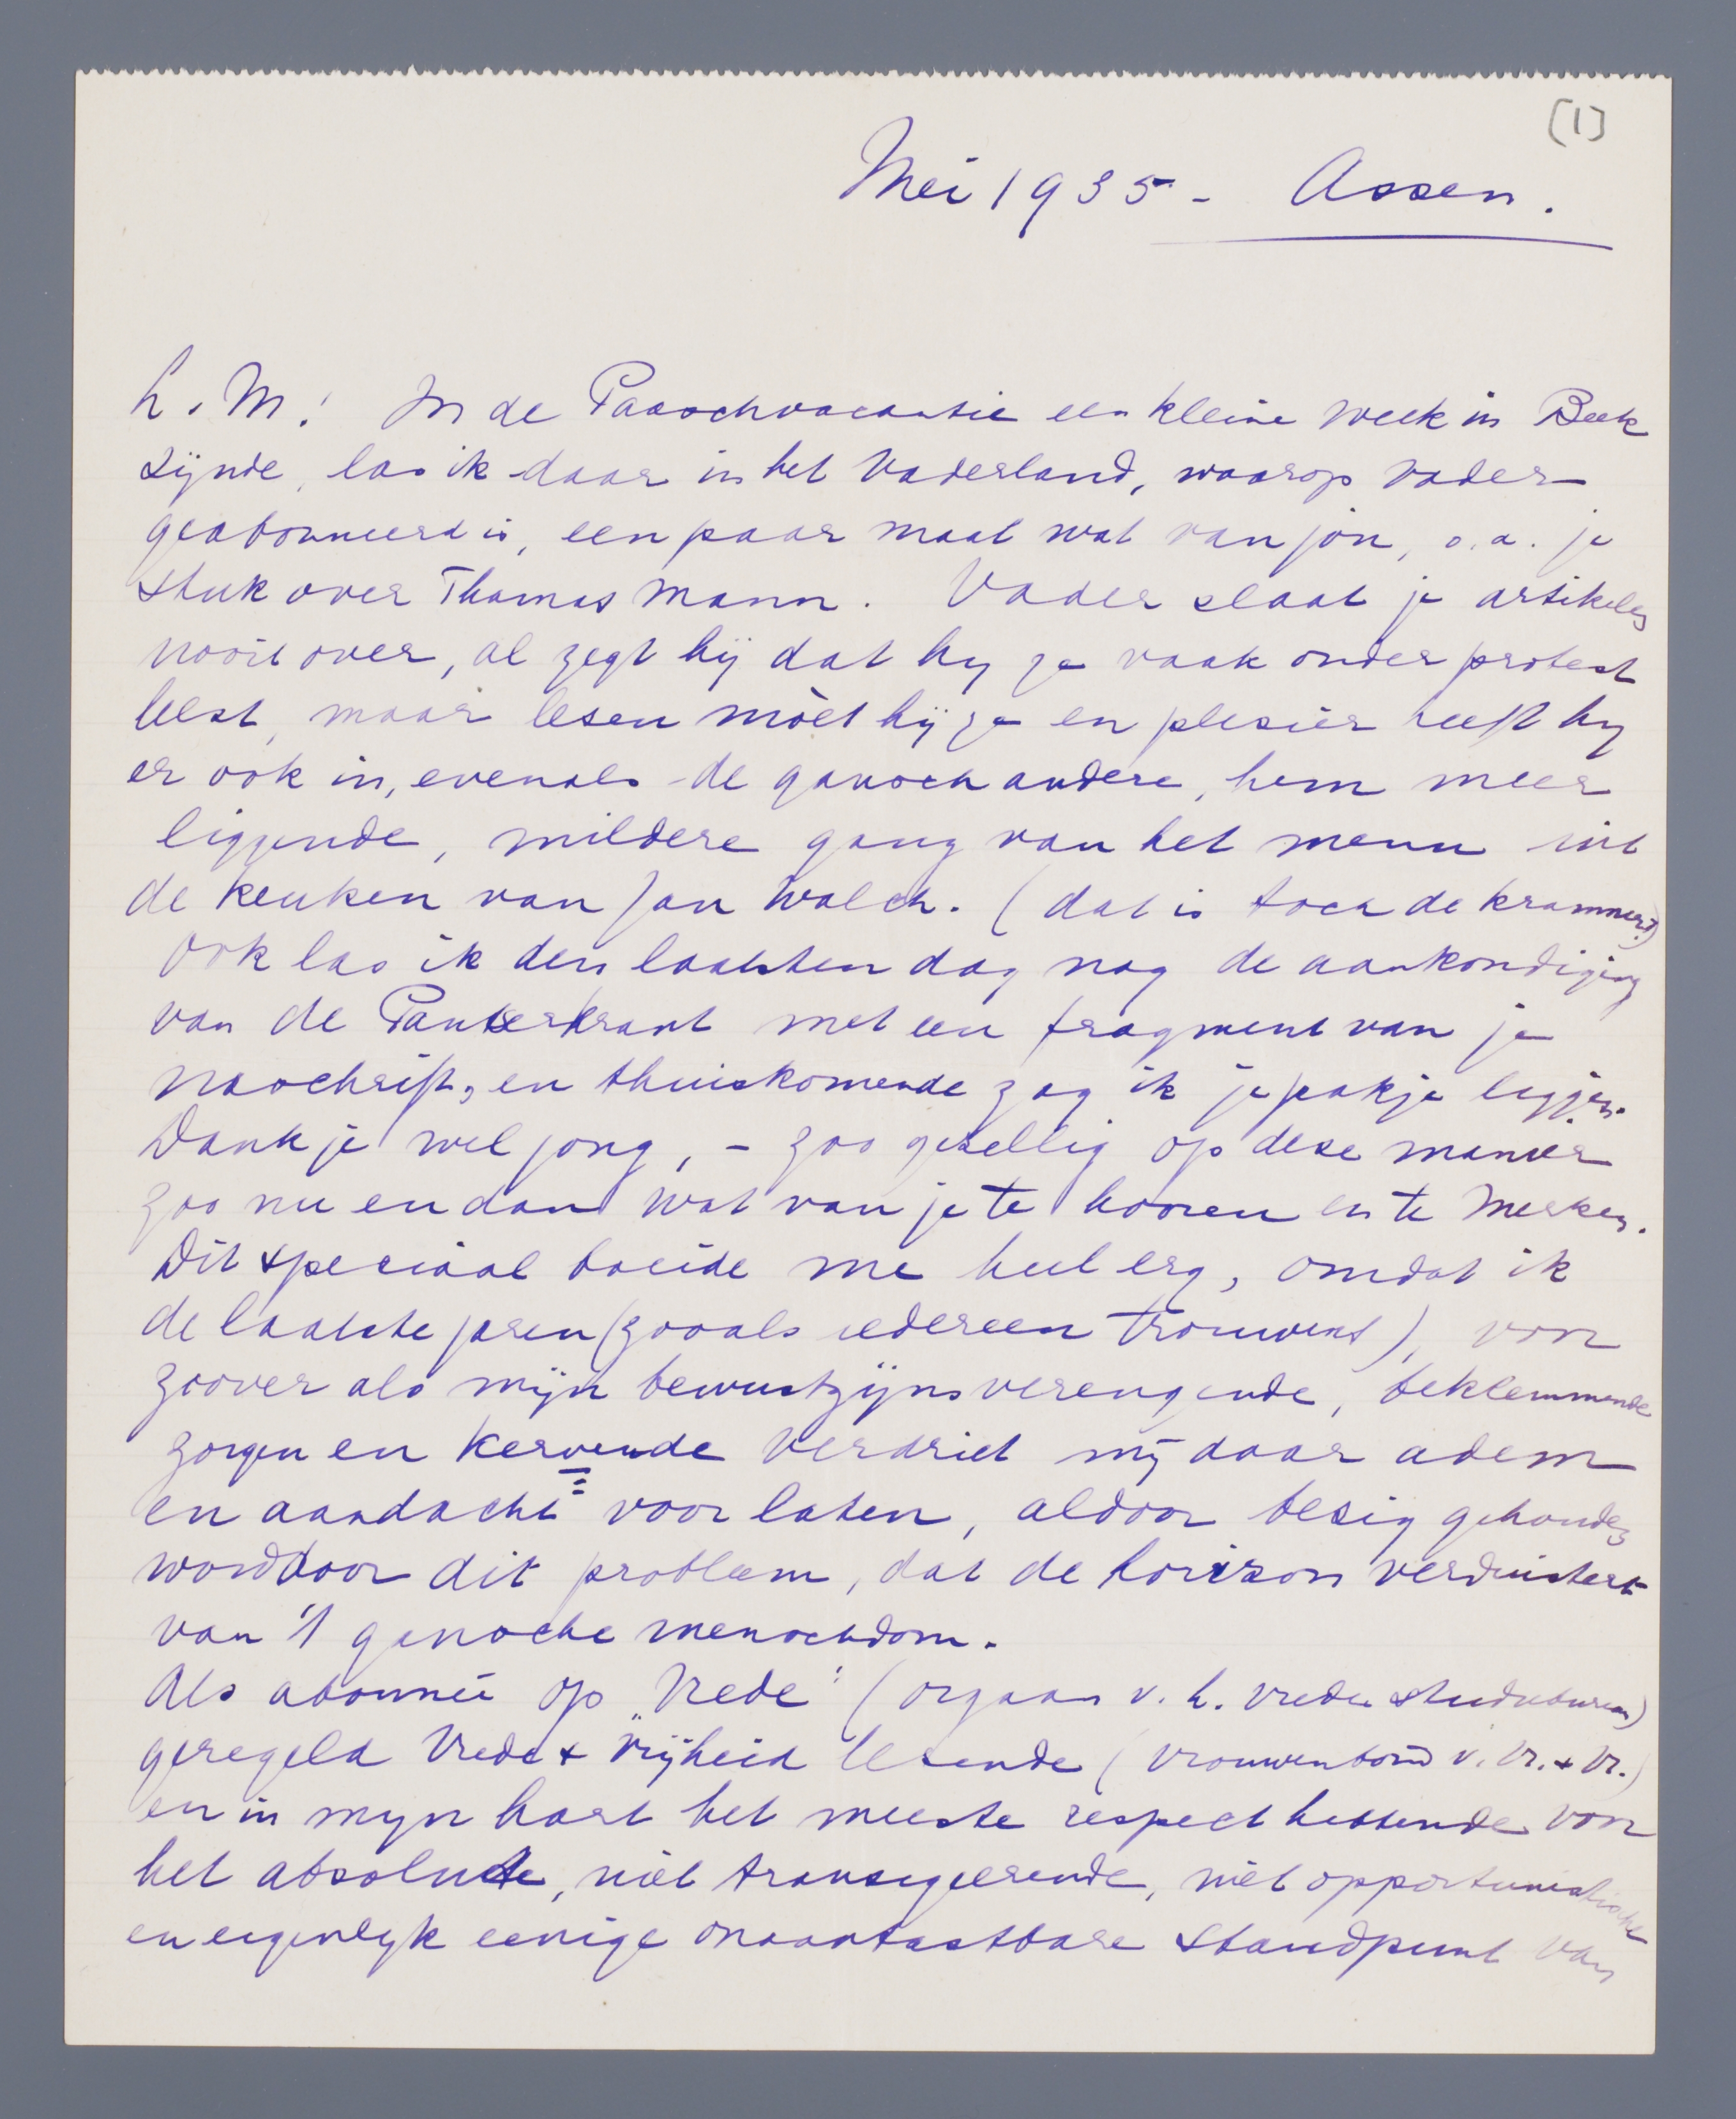 [1]
Mei 1935 - Assen.
L. M! In de Paaschvacantie een kleine week in Beek
zijnde, las ik daar in het Vaderland, waarop vader
geabonneerd is, een paar maal wat van jou, o.a. je
stuk over Thomas Mann. Vader slaat je artikelen
nooit over, al zegt hij dat hij ze vaak onder protest
leest, maar lezen mòet hij ze en plezier heeft hij
er ook in, evenals de gansch andere, hem meer
liggende, mildere gang van het menu uit
de keuken van Jan Walch. (dat is toch de krammer?)
Ook las ik den laatsten dag nog de aankondiging
van de Panterkrant met een fragment van je
naschrift, en thuiskomende zag ik je pakje liggen.
Dank je wel jong, - zoo gezellig op deze manier
zoo nu en dan wat van je te hooren en te merken.
Dit speciaal boeide me heel erg, omdat ik
de laatste jaren (zooals iedereen trouwens), voor
zoover als mijn bewustzijnsverengende, beklemmende
zorgen en kervende verdriet mij daar adem
en aandacht voor laten, aldoor bezig gehouden
word door dit probleem, dat de horizon verduistert
van 't gansche menschdom.
Als abonnée op „Vrede" (orgaan v. h. vredes studiebureau)
geregeld Vrede + Vrijheid lezende (Vrouwenbond v. Vr. + Vr.)
en in mijn hart het meeste respect hebbende voor
het absolute, niet transigeerende, niet opportunistische
en eigenlijk eenige onaantastbare standpunt van